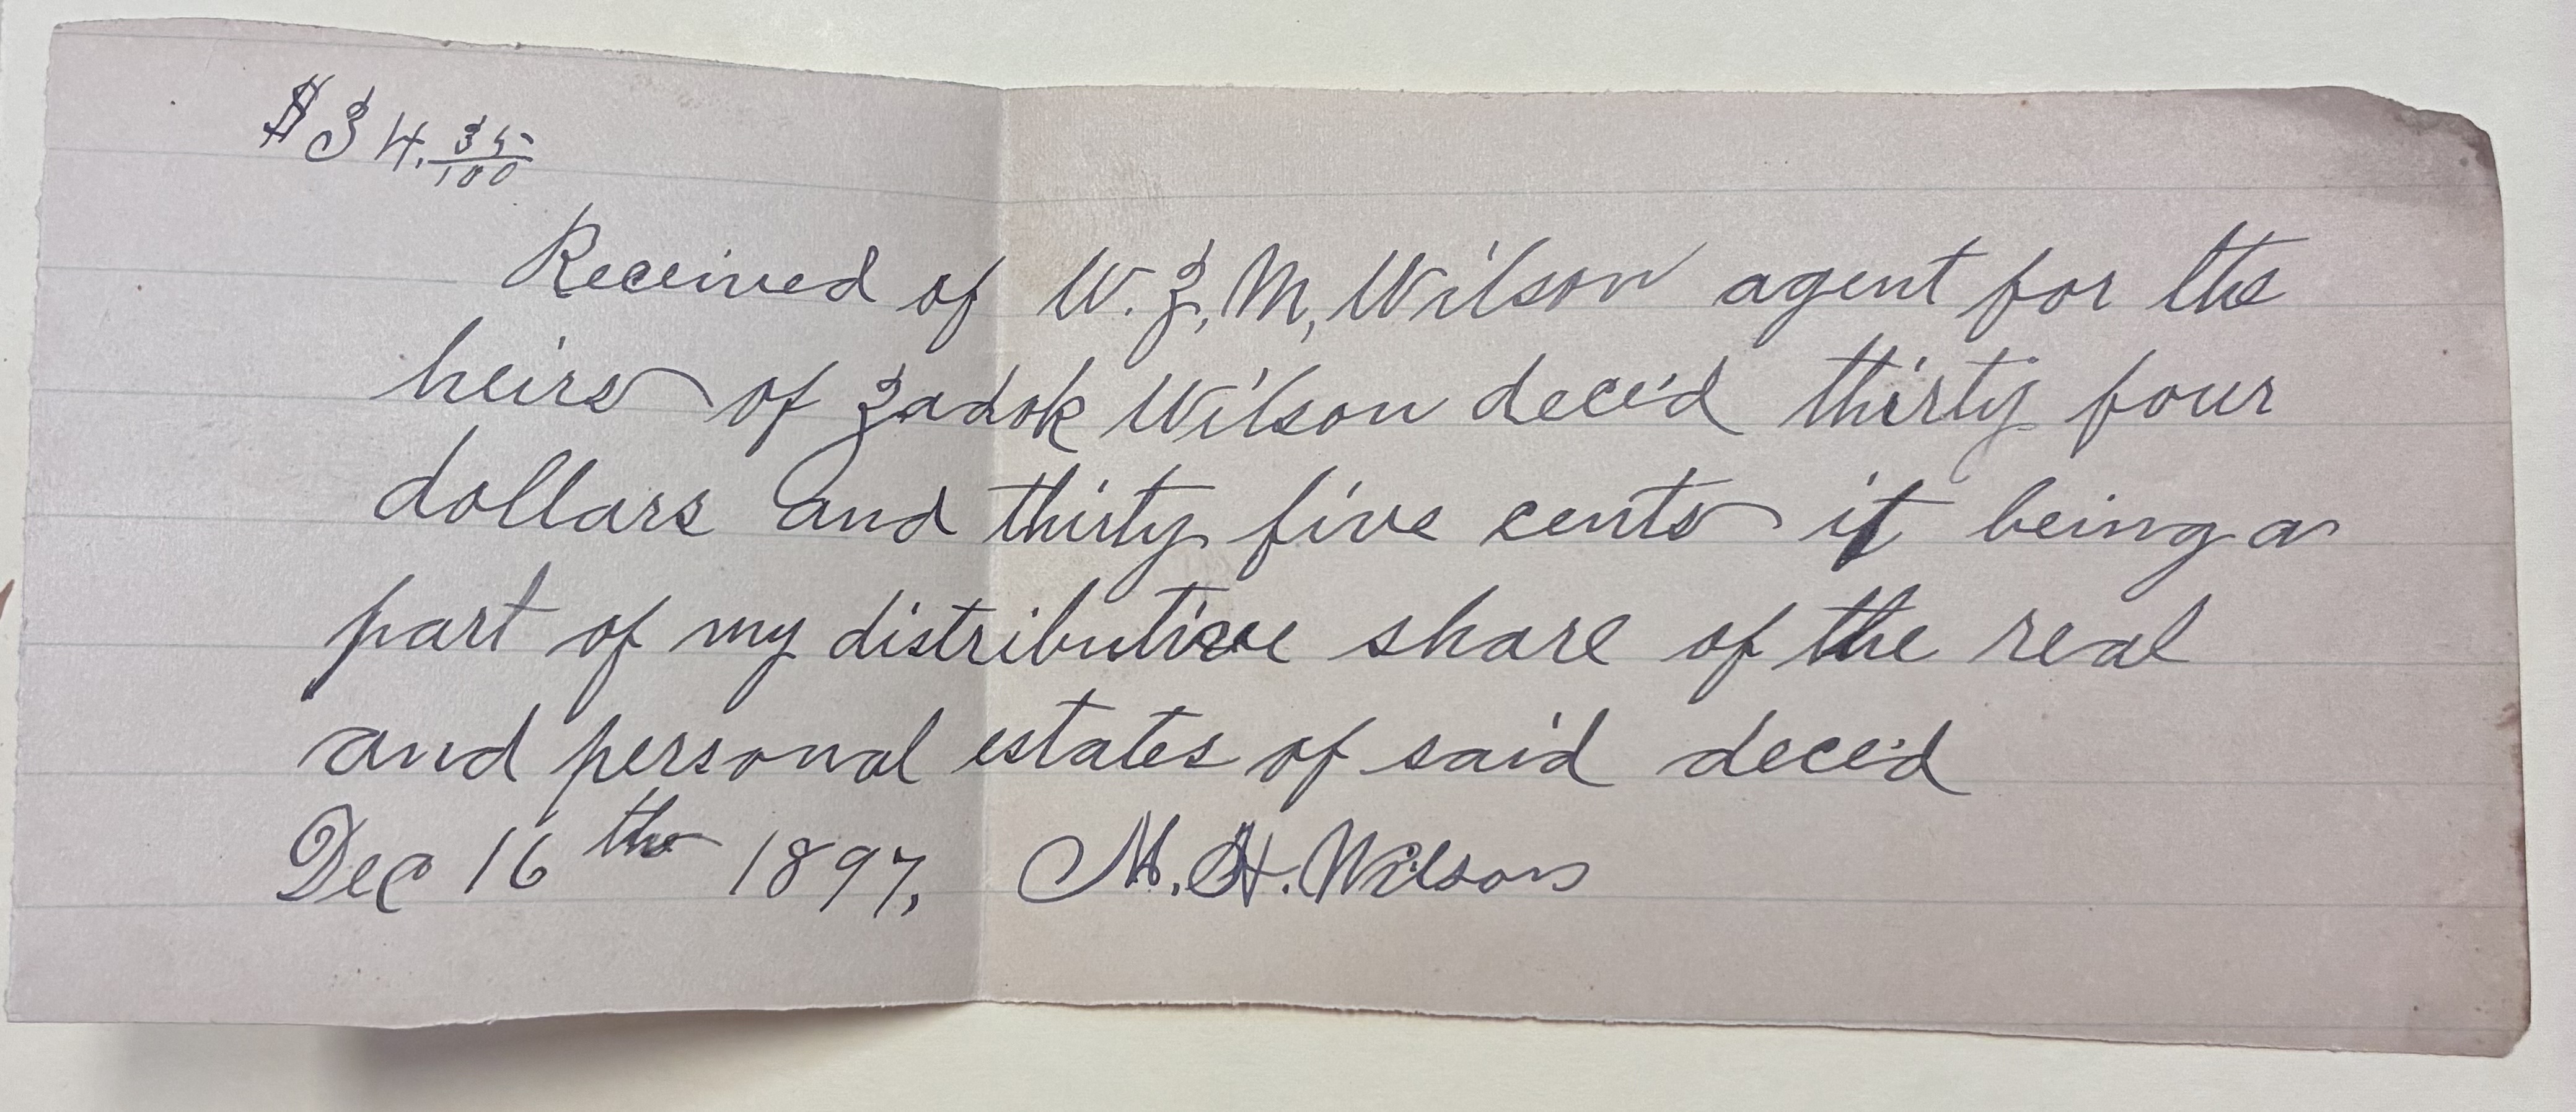 $34.35/100
Received of W. Z. M. Wilson agent for the
heirs of Zadok Wilson dece'd thirty four
dollars and thirty five cents it being a
part of my distributive share of the real
and personal estates of said dece'd
Dec 16th 1897, M. H. Wilson